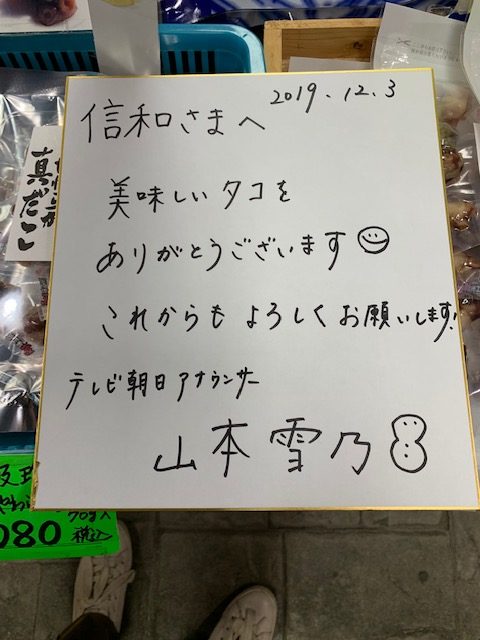 信和さまへ
2019.12.3
美味しいタコを
ありがとうございます
これからもよろしくお願いします!
テレビ朝日アナウンサー
山本雪乃
真だこ
080
税込